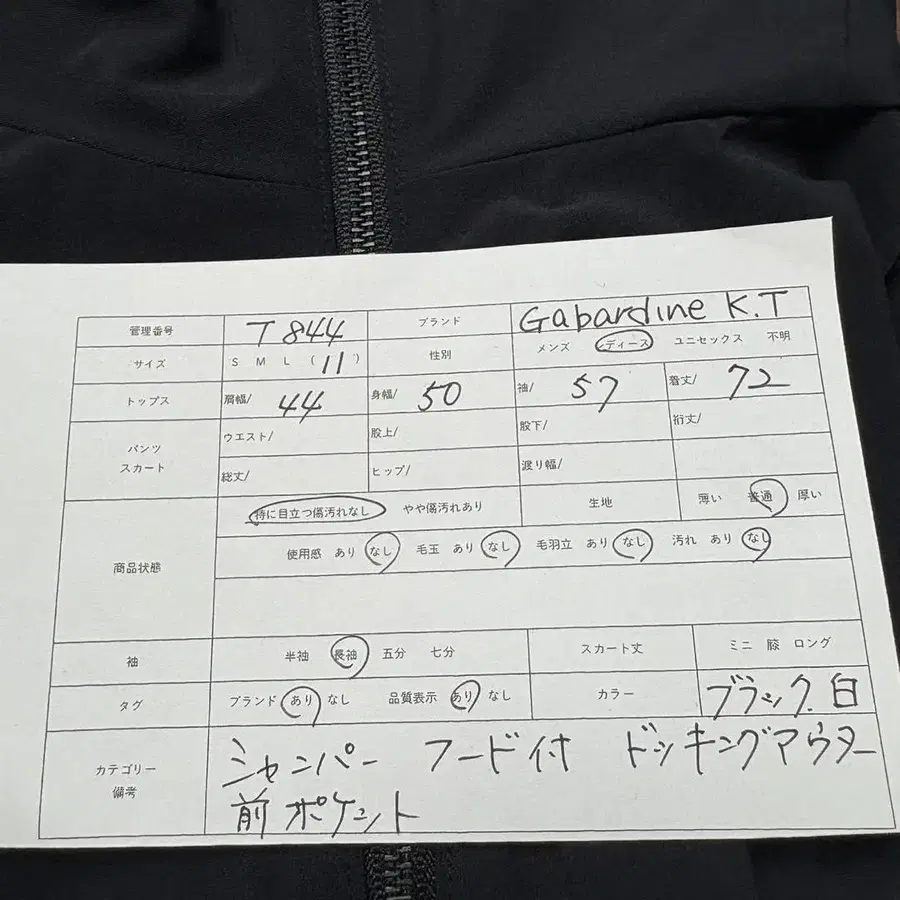 管理番号 T844 ブランド Gabardine K.T
サイズ S M L (11) 性別 メンズ レディース ユニセックス 不明
トップス 肩幅/ 44 身幅/ 50 袖/ 57 着丈/ 72
パンツ スカート ウエスト/ 股上/ 股下/ 裄丈/
総丈/ ヒップ/ 渡り幅/
商品状態 特に目立つ傷汚れなし やや傷汚れあり 生地 薄い 普通 厚い
使用感 あり なし 毛玉 あり なし 毛羽立 あり なし 汚れ あり なし
袖 半袖 長袖 五分 七分 スカート丈 ミニ 膝 ロング
タグ ブランド あり なし 品質表示 あり なし カラー ブラック.白
カテゴリー 備考 ジャンパー フード付 ドッキングアウター
前ポケット